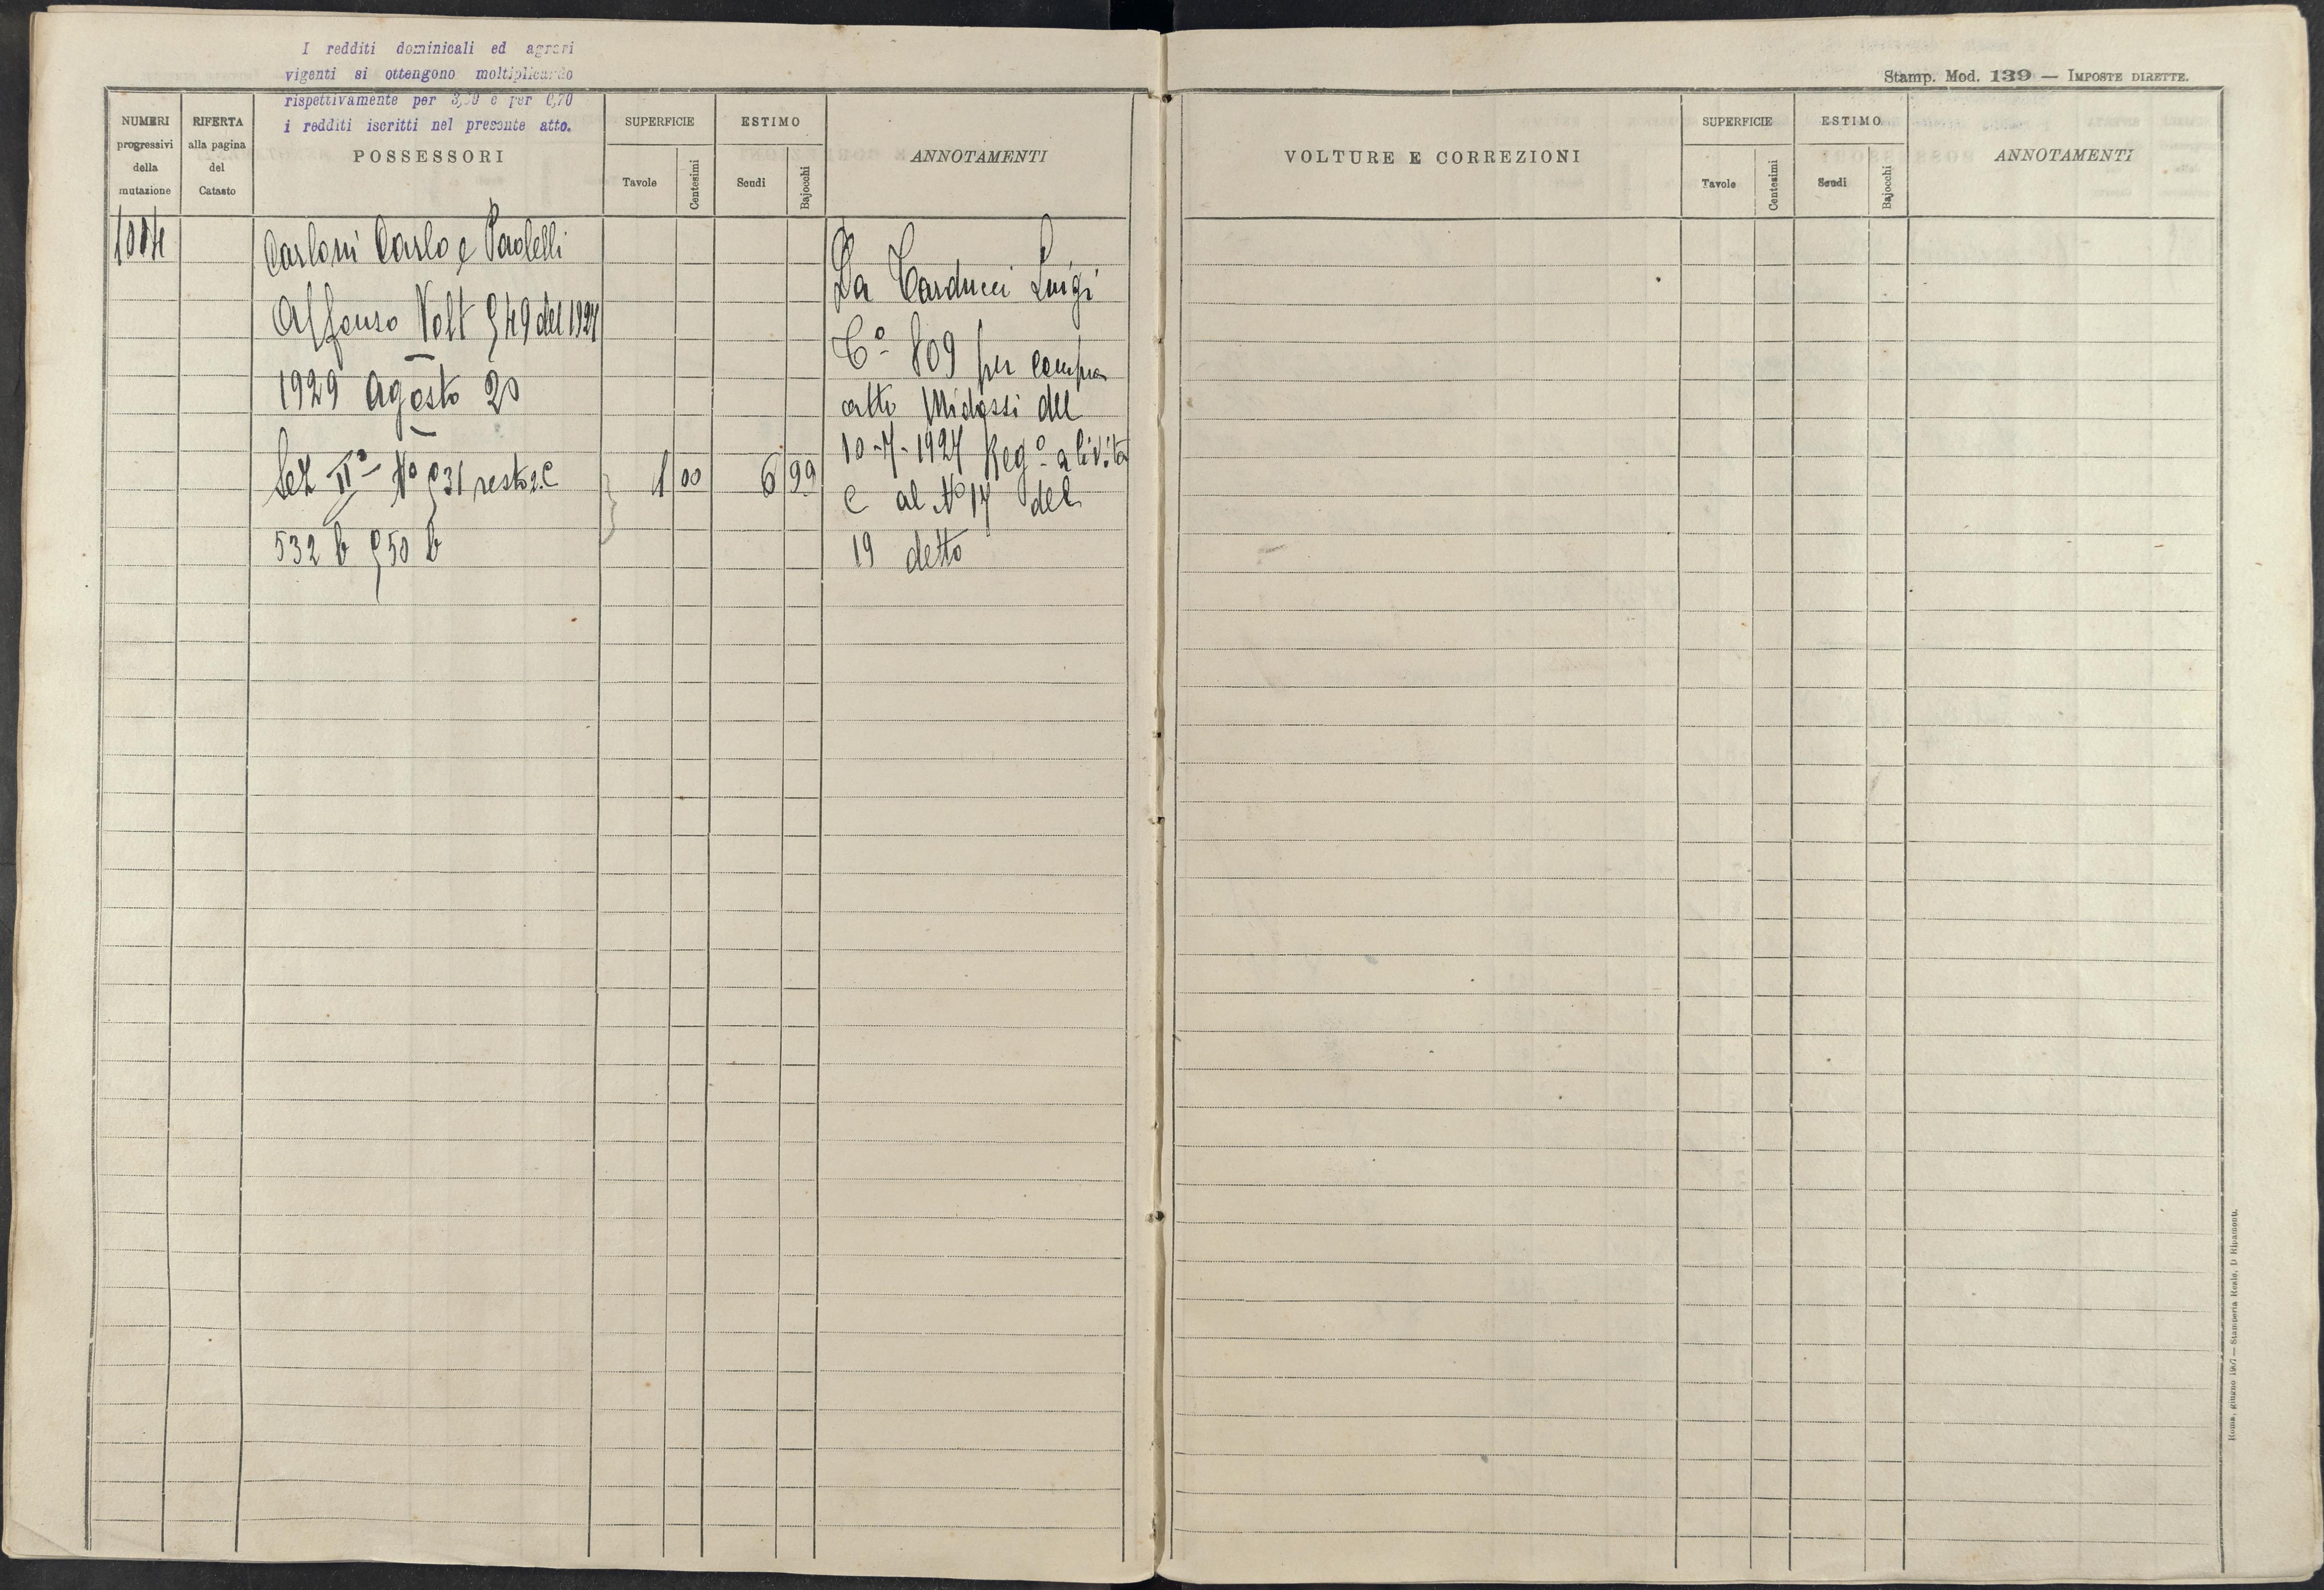 I redditi dominicali ed agrari
vigenti si ottengono moltiplicando
rispettivamente per e per 0,70
i redditi iscritti nel presente atto.
Stamp. Mod. 139 — IMPOSTE DIRETTE.
NUMERI
progressivi
della
mutazione
RIFERTA
alla pagina
del
Catasto
POSSESSORI
SUPERFICIE
Tavole
Centesimi
ESTIMO
Scudi
Bajocchi
ANNOTAMENTI
VOLTURE E CORREZIONI
SUPERFICIE
Tavole
Centesimi
ESTIMO
Scudi
Bajocchi
ANNOTAMENTI
Carloni Carlo e Paolelli
Alfonso Volt 549 del
1929 Agosto 20
Sez II° N° 531 resto
532 b 550 b
1 00 6 99
Da Carducci Luigi
C° 809 per compra
atto Midossi del
Reg° a Civita
C al N° 17 del
19 detto
Roma, giugno — Stamperia Reale, D Ripamonti.